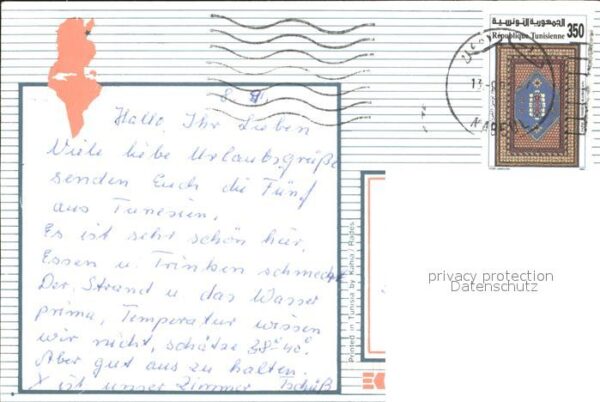 الجمهورية التونسية
350
République Tunisienne
13
8
Hallo, Ihr Lieben
Viele liebe Urlaubsgrüße
senden Euch die Fünf
aus Tunesien.
Es ist sehr schön hier,
Essen u. Trinken schmeckt
Der Strand u das Wasser
prima, Temperatur wissen
wir nicht, schätze 38° 40°
Aber gut aus zu halten.
X ist unser Zimmer Tschüß
Printed in Tunisia by Kahia / Rades
privacy protection
Datenschutz